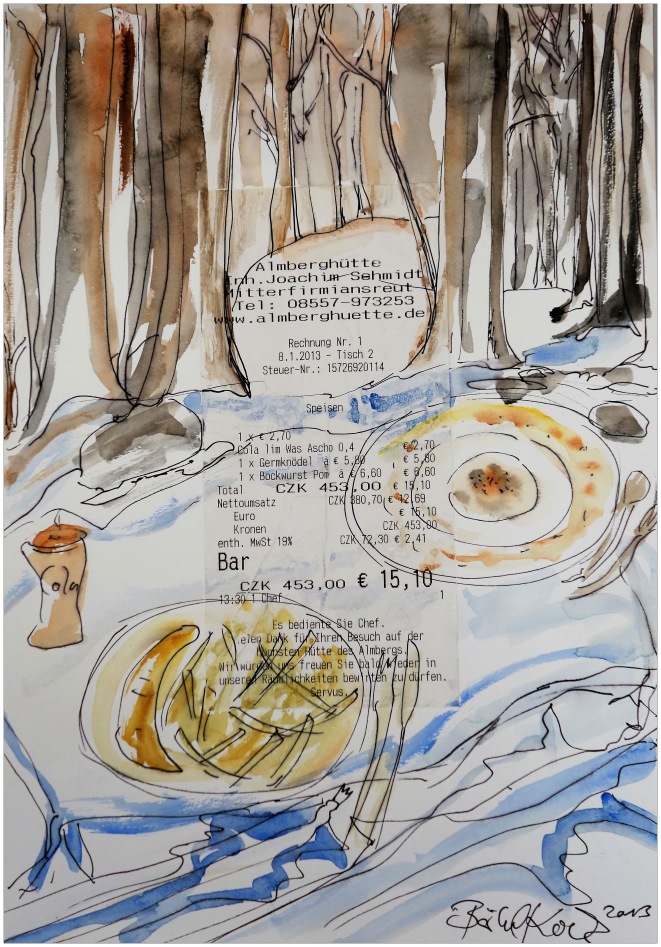 Almberghütte
Inh.Joachim Schmidt
Mitterfirmiansreut
Tel: 08557-973253
www.almberghuette.de
Rechnung Nr. 1
8.1.2013 - Tisch 2
Steuer-Nr.: 15726920114
Speisen
1 x € 2,70
Cola lim Was Ascho 0,4 € 2,70
1 x Germknödel à € 5,80 € 5,80
1 x Bockwurst Pom à € 6,60 € 6,60
Total CZK 453,00 € 15,10
Nettoumsatz CZK 380,70 € 12,69
Euro € 15,10
Kronen CZK 453,00
enth. MwSt 19% CZK 72,30 € 2,41
Bar
CZK 453,00 € 15,10
13:30 1 Chef 1
Es bediente Sie Chef.
Vielen Dank für Ihren Besuch auf der
Hütte des Almbergs.
Wir würden uns freuen Sie bald wieder in
unseren Räumlichkeiten bewirten zu dürfen.
Servus.
Cola
2013